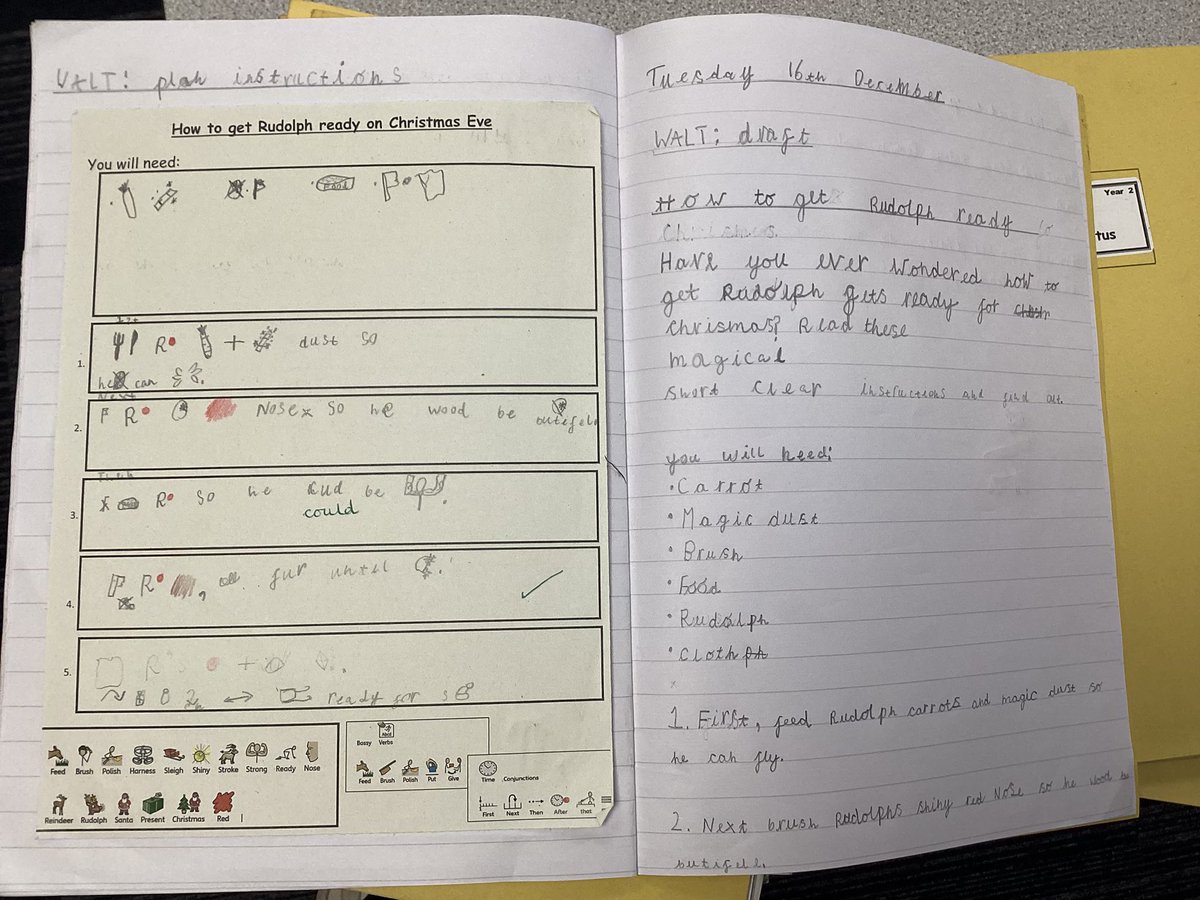 WALT: plan instructions
How to get Rudolph ready on Christmas Eve
You will need:
food
1.
R + dust so
he can
Next
2.
R Nose so he wood be
3.
Then
R so he cud be
could
4.
R, fur until
5.
R's +
ready for
Feed Brush Polish Harness Sleigh Shiny Stroke Strong Ready Nose
Reindeer Rudolph Santa Present Christmas Red
Bossy Verbs
Feed Brush Polish Put Give
Time Conjunctions
First Next Then After that
Tuesday 16th December
WALT: draft
How to get Rudolph ready
Christmas
Have you ever wondered how to
get Rudolph gets ready for
chrismas? Read these
magical
short clear instructions and find out.
you will need:
• Carrot
• Magic dust
• Brush
• Food
• Rudolph
• Cloth
1. First, feed Rudolph carrots and magic dust so
he can fly.
2. Next brush Rudolphs shiny red Nose so he wood be
butifell.
Year 2
tus